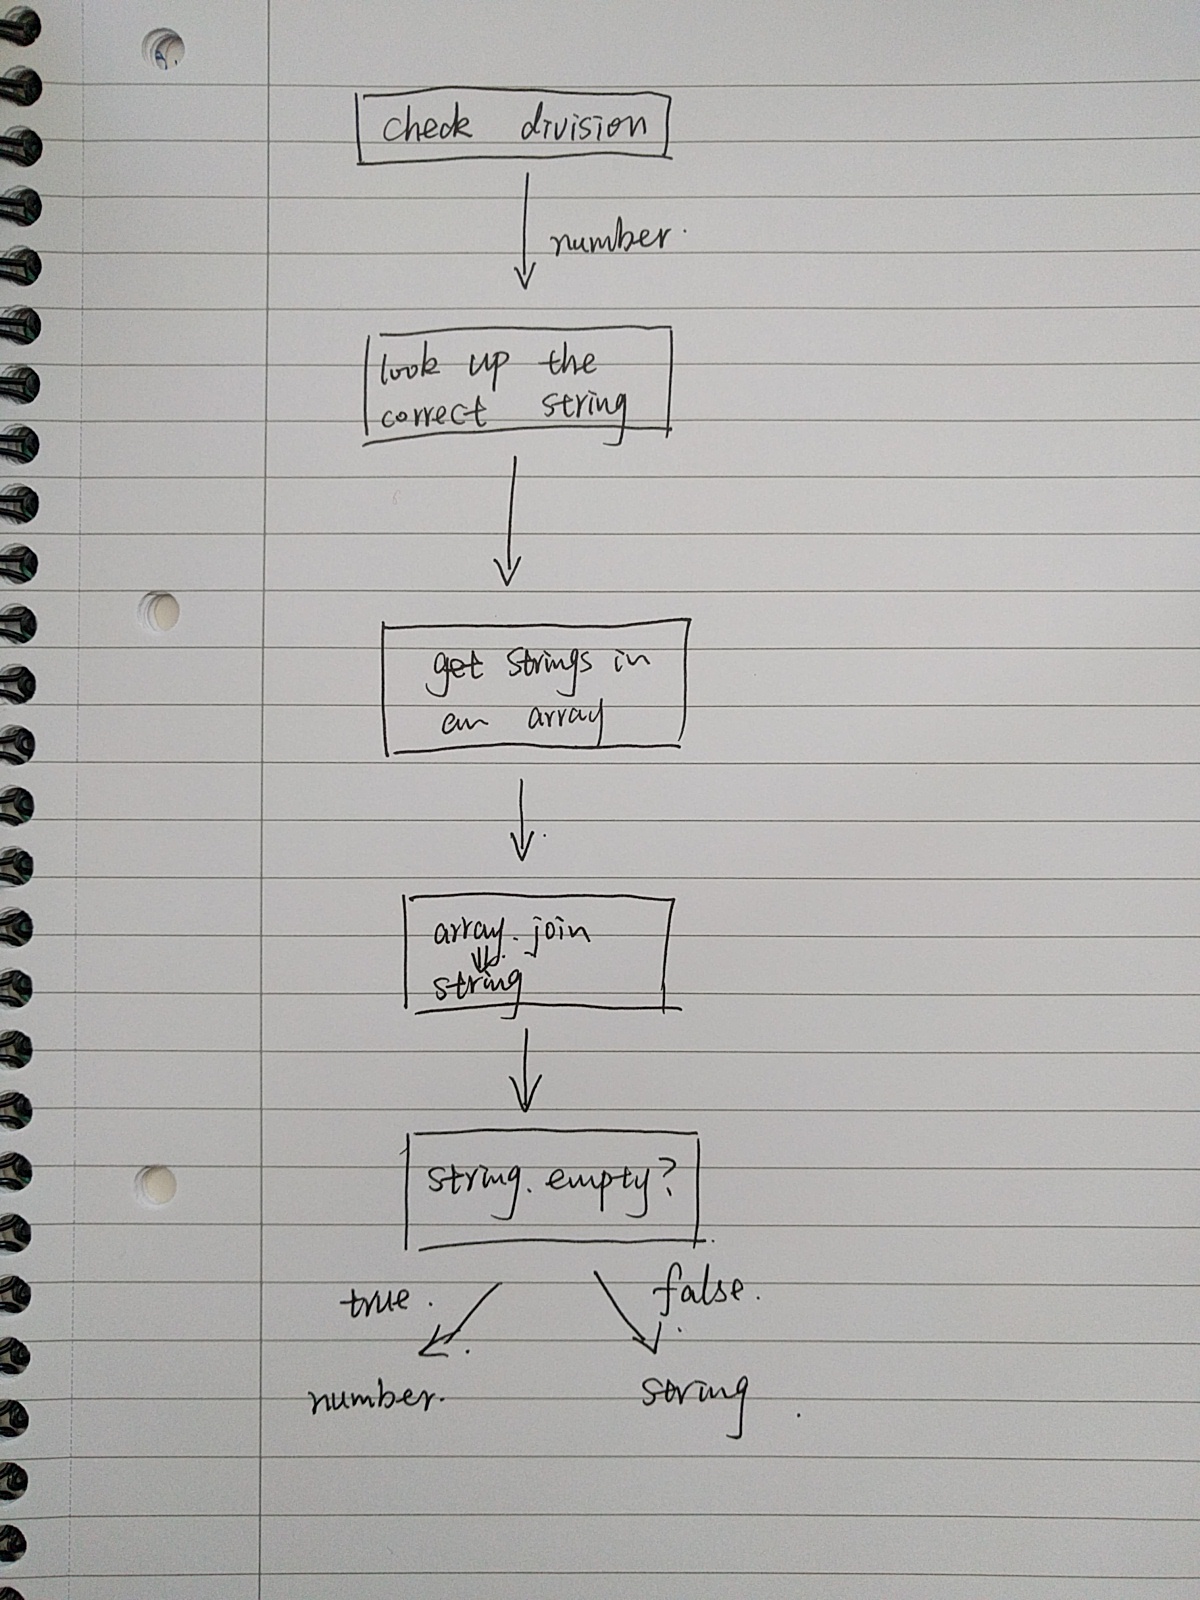 check division
number.
look up the
correct string
get strings in
an array
array.join
string
string.empty?
true.
false.
number.
string